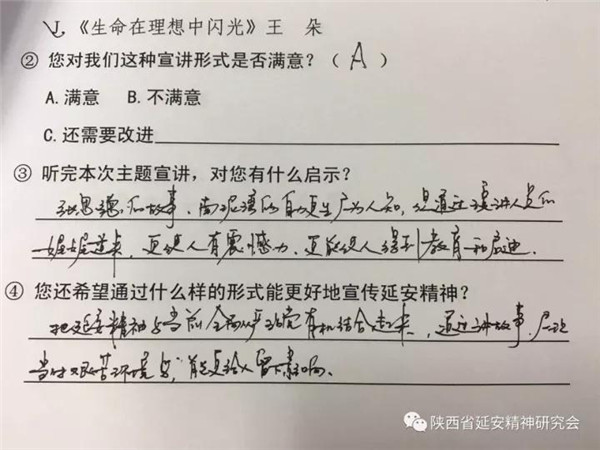 J.《生命在理想中闪光》王 朵
② 您对我们这种宣讲形式是否满意？（ A ）
A. 满意 B. 不满意
C. 还需要改进
③ 听完本次主题宣讲，对您有什么启示？
张思德的故事、南泥湾的自力更生广为人知，但通过宣讲人员的
娓娓道来，更让人有震憾力、更能让人得到教育和启迪.
④ 您还希望通过什么样的形式能更好地宣传延安精神？
把延安精神与当前全面从严治党有机结合起来，通过讲故事、
当时艰苦环境 ，能更给人留下影响。
陕西省延安精神研究会